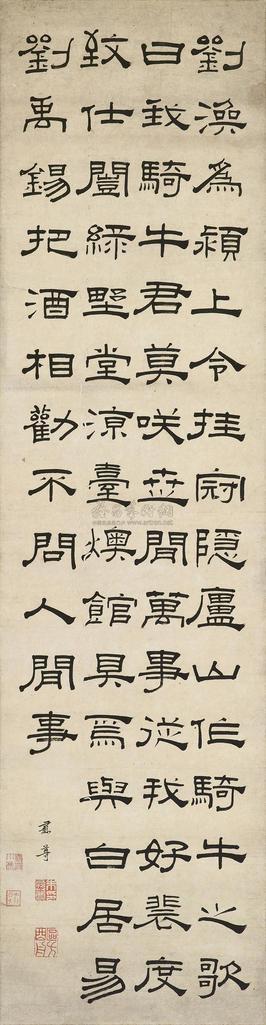 劉渙為潁上令挂冠隱廬山作騎牛之歌
曰我騎牛君莫咲世間萬事從我好裴度
致仕闢綠野堂涼臺燠館具焉與白居易
劉禹錫把酒相勸不問人間事